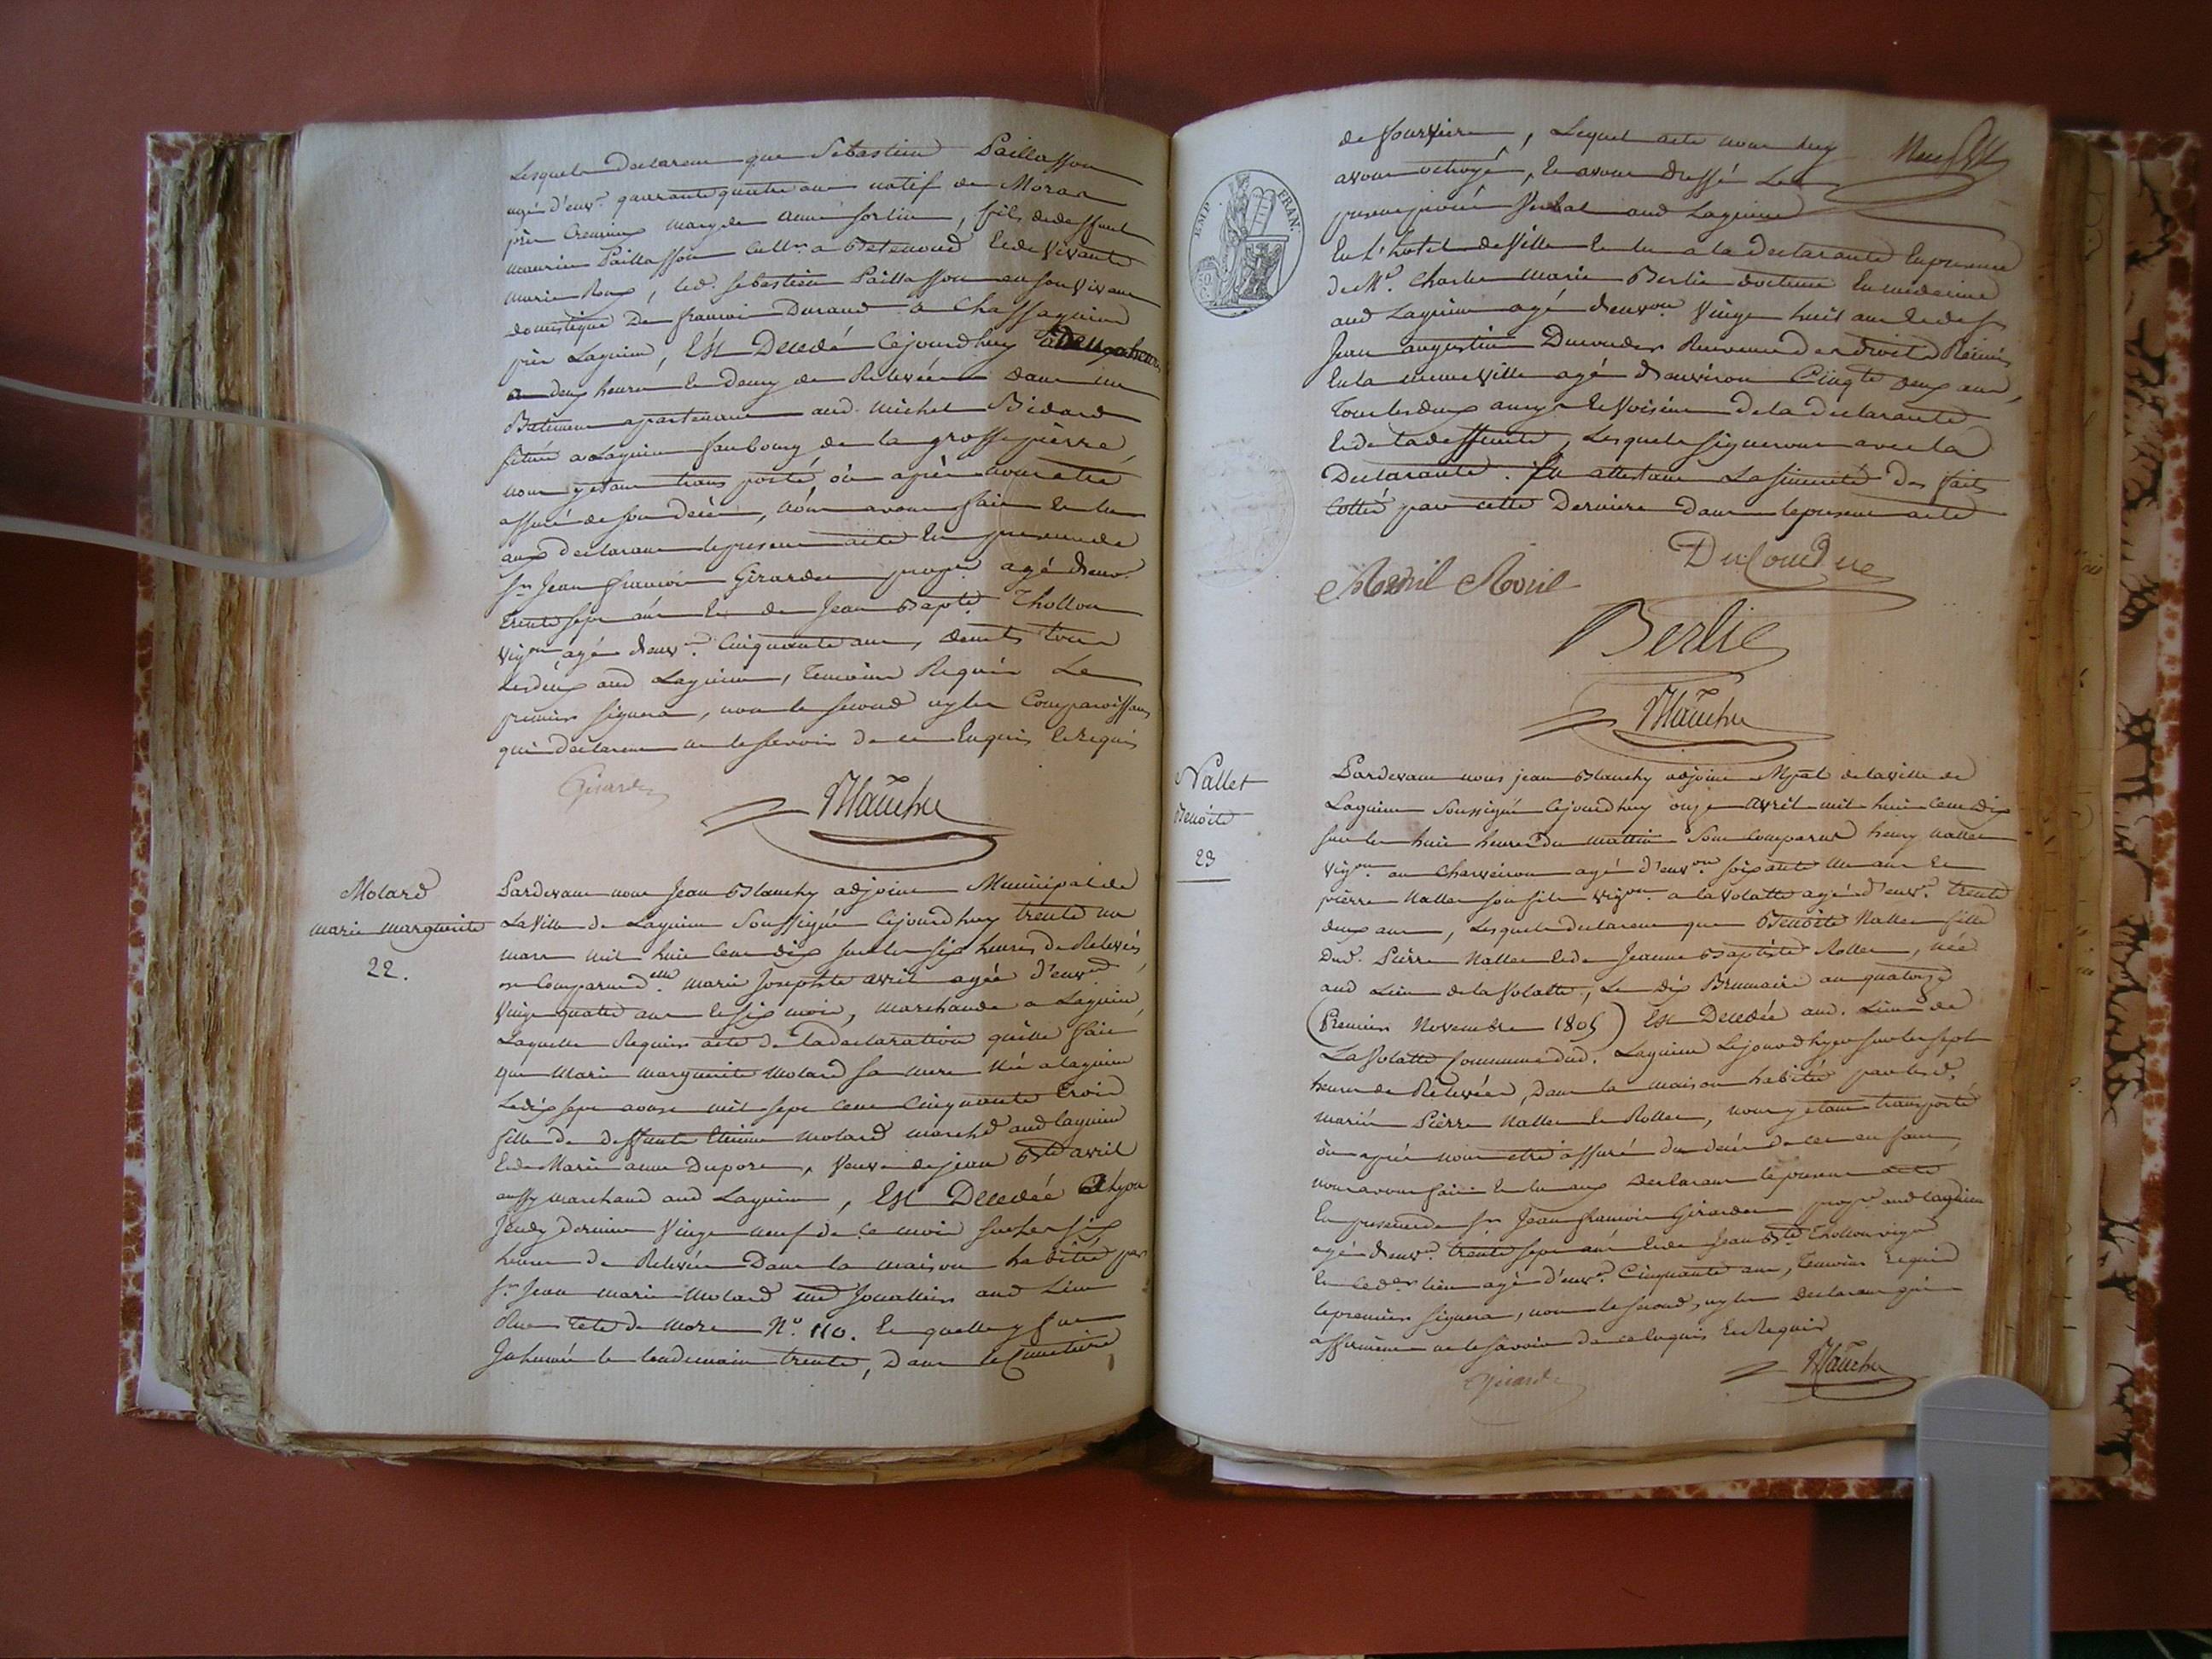 Lesquels declarent que Sebastien Paillasson
agé d'env.n quarante quatre ans natif de Moras
près Cremieu mary de anne fortin, fils de deffunt
maurice Paillasson cult.r a Betenoud et de vivante
marie Roux, led. Sebastien Paillasson en son vivant
domestique De francois Durand a Chassagnieu
près Lagnieu, Est Decedé Cejourdhuy
a deux heures et demy de Relevée dans un
Batiment apartenant aud. Michel Bidard
situé a Lagnieu faubourg de la grosse pierre,
nous y étant transporté, où après nous etre
assuré de son décès, nous avons fait et lu
aux declarants le present acte En presence de
Sr. Jean francois Girardet prop.re agé d'env.
trente sept ans et de Jean Bapte. Thollon
vigon. agé d'env.n Cinquante ans, demts. tous
les deux aud Lagnieu, temoins Requis Le
premier signera, non le second ny les Comparoissans
qui declarent ne le scavoir de ce Enquis et Requis
Girardet
Blanchy
Molard
marie marguerite
22.
Pardevant nous Jean Blanchy adjoint Municipal de
La Ville de Lagnieu Soussigné Cejourdhuy trente un
mars mil huit cent dix sur les six heures de Relevée
est Comparue d.elle marie Josephte avril agée d'env.n
Vingt quatre ans et six mois, marchande a Lagnieu
Laquelle Requiert acte de la declaration quelle fait
que Marie marguerite Molard sa mere née a lagnieu
Le dix sept aoust mil sept cent Cinquante trois
fille de deffunts Etienne Molard marchd aud lagnieu
et de Marie anne Duport, Veuve de jean Bte avril
aussy marchand aud Lagnieu, Est Decedée a Lyon
Jeudy dernier Vingt neuf de ce mois sur les six
heures de Relevée Dans la maison habitée par
Sr. Jean marie Molard md Jouallier aud Lieu
Rue tete de more No. 110. Et quelle y fut
Inhumée le lendemain trente, Dans le Cimetiere
EMP. FRAN.
de fourviere, Lequel acte nous luy
avons octroyé, et avons dressé Le
present procés verbal aud Lagnieu
En l'hotel de Ville et lu a la Declarante En presence
de Mr. Charles Marie Berlie docteur En medecine
aud Lagnieu agé d'environ Vingt huit ans et de Sr
Jean augustin Ducoudre Receveur des droits Réunis
En la meme ville agé d'environ Cinqte deux ans,
tous les deux amys et Voisins de la declarante
et de la deffunte, Lesquels signeront avec la
Declarante. En attestant La sincerité des faits
Cottés par cette Derniere dans le present acte
DuCoudre
Avril
Berlie
Blanchy
Nallet
Benoite
23
Pardevant nous jean Blanchy adjoint Mpal de la ville de
Lagnieu Soussigné Cejourdhuy onze avril mil huit cent dix
sur les huit heures du mattin Sont comparus henry nallet
Vigon. au Charveiron agé d'envon. soixante un ans et
pierre Nallet son fils vigon. a la Volatte agé d'env.n trente
deux ans, Lesquels declarent que Benoite Nallet fille
Dud. Pierre Nallet et de Jeanne Baptiste Rollet, née
aud Lieu de la Volatte, Le dix Brumaire an quatorze
(Premier Novembre 1805) Est Decedée aud. Lieu de
La Volatte Commune dud. Lagnieu Lejourdhyer sur les sept
heures de Relevée, Dans la maison habitée par lesd.
mariés Pierre Nallet et Rollet, nous y étant transporté
où après nous etre assuré du decès de cet enfant,
nous avons fait et lu aux declarants le present acte
En presence de Sr. Jean francois Girardet prop.re aud lagnieu
agé d'env.n trente sept ans et de Jean Bte Thollon vigon
En led. lieu agé d'env.n Cinquante ans, temoins requis
le premier signera, non le second, ny les declarans qui
affirment ne le savoir de ce Enquis et Requis
Girardet
Blanchy